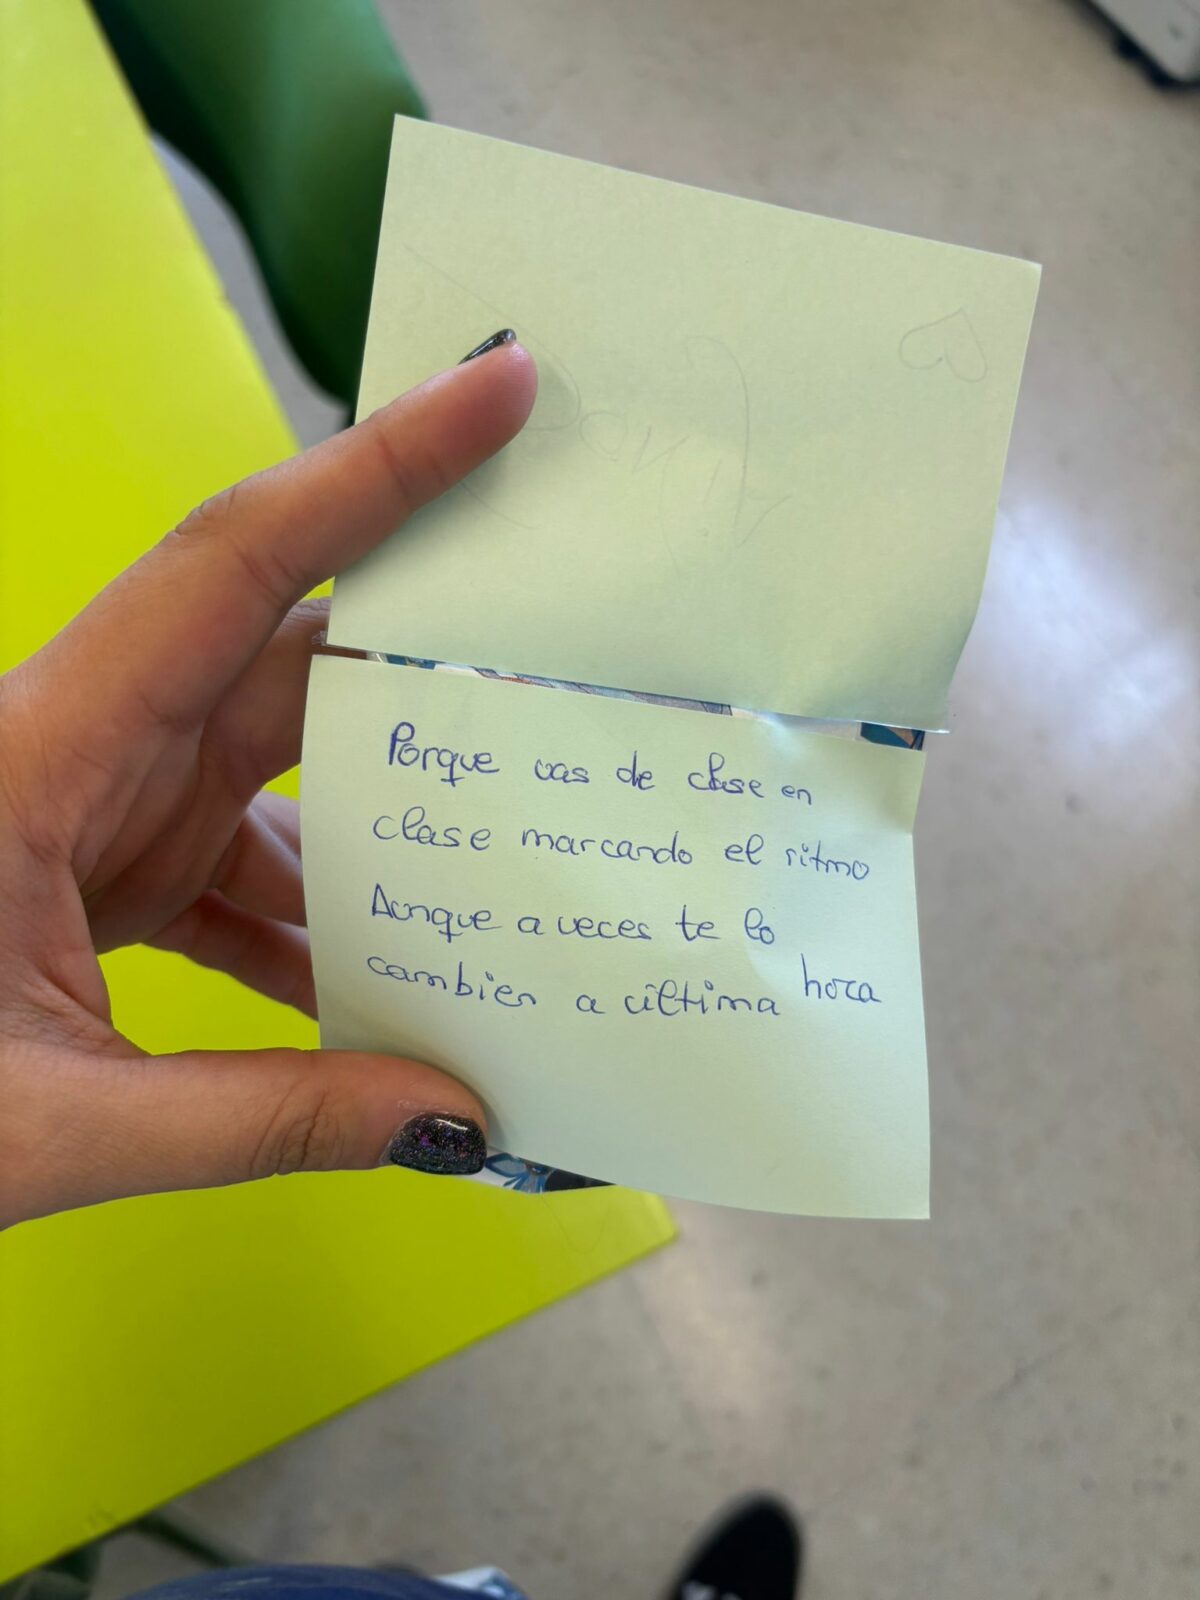 Porque vas de clase en
clase marcando el ritmo
Aunque a veces te lo
cambien a última hora